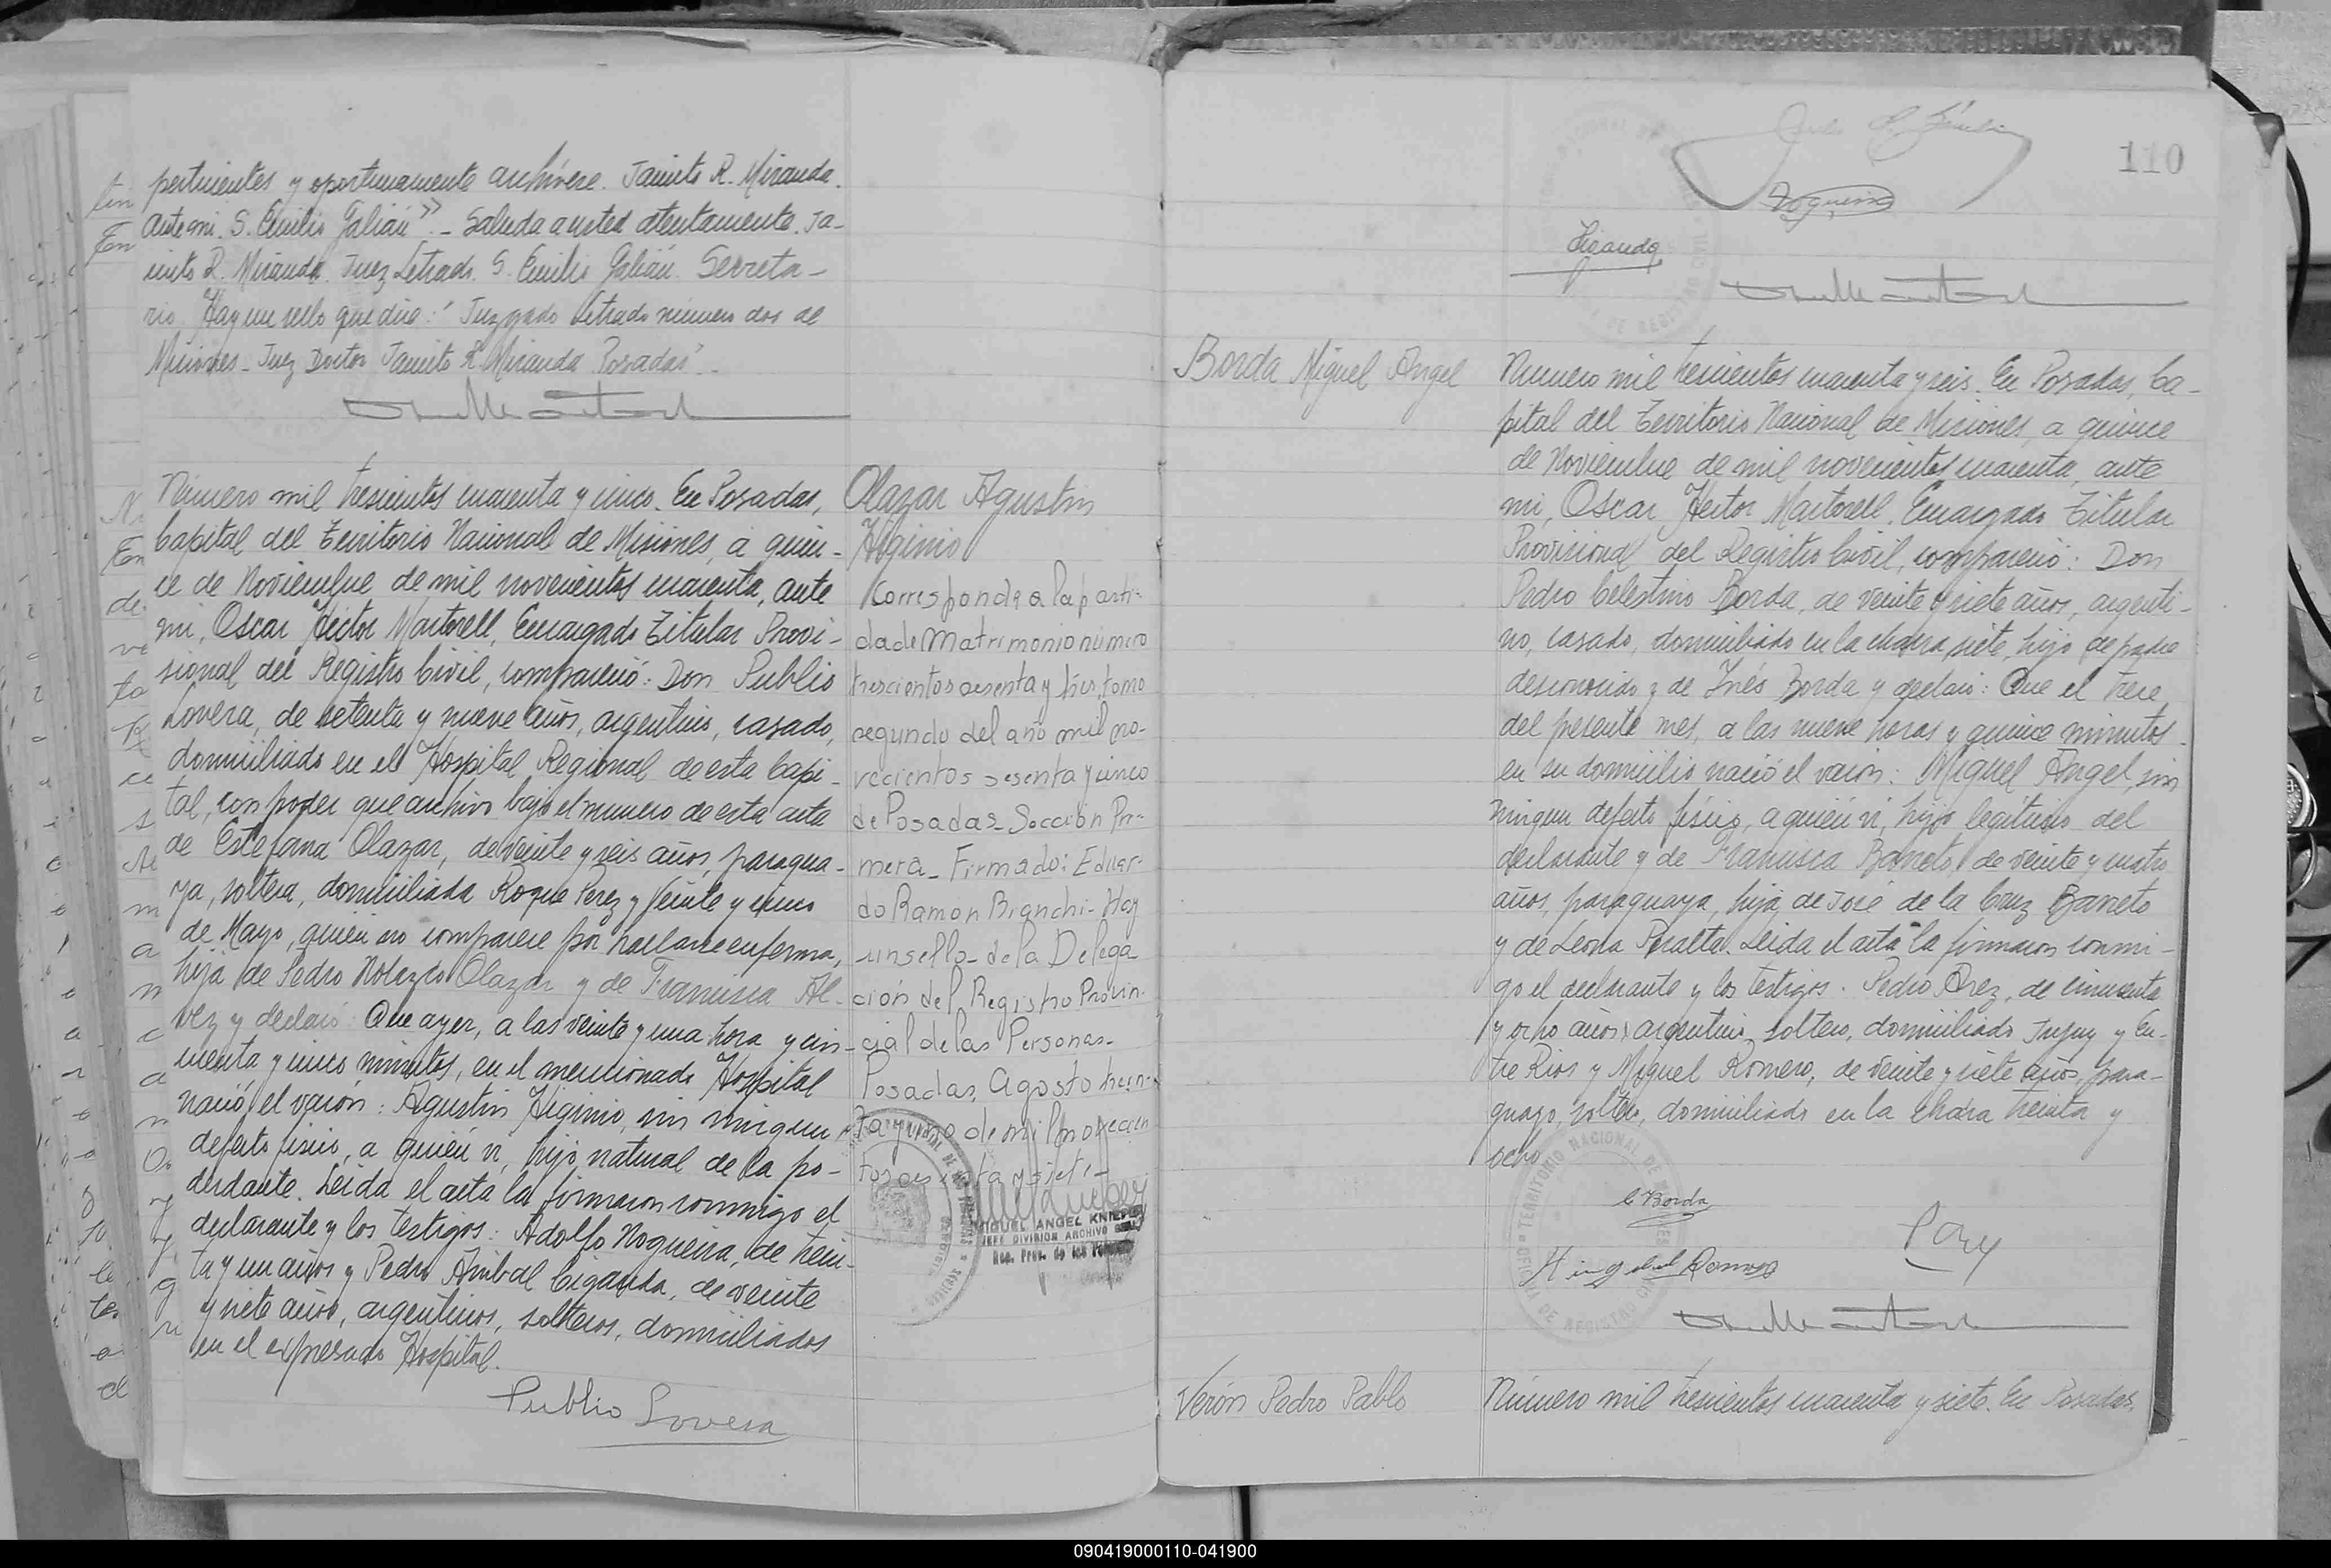 pertinentes y oportunamente archívese. Jacinto R. Miranda.
Ante mi. S. Emilio Galián". - Saluda a usted atentamente. Ja-
cinto R. Miranda. Juez Letrado. S. Emilio Galián. Secreta-
rio. Hay un sello que dice: "Juzgado Letrado número dos de
Misiones - Juez Doctor Jacinto R. Miranda Posadas". -
Número mil trescientos cuarenta y cinco. En Posadas,
Capital del Territorio Nacional de Misiones, a quin-
ce de Noviembre de mil novecientos cuarenta, ante
mi, Oscar Héctor Martorell, Encargado Titular Provi-
sional del Registro Civil, compareció: Don Publio
Lovera, de setenta y nueve años, argentino, casado,
domiciliado en el Hospital Regional de esta Capi-
tal, con poder que archivo bajo el numero de esta acta
de Estefana Olazar, de veinte y seis años, paragua-
ya, soltera, domiciliada Roque Perez y Veinte y cinco
de Mayo, quién no comparece por hallarse enferma,
hija de Pedro Nolazco Olazar y de Francisca Al-
vez y declaró: Que ayer, a las veinte y una hora y cin-
cuenta y cinco minutos, en el mencionado Hospital
nació el varón: Agustin Higinio, sin ningun
defecto fisico, a quién vi, hijo natural de la po-
derdante. Leida el acta la firmaron conmigo el
declarante y los testigos: Adolfo Nogueira, de trein-
ta y un años y Pedro Anibal Ciganda, de veinte
y siete años, argentinos, solteros, domiciliados
en el expresado Hospital.
Publio Lovera
Olazar Agustin
Higinio
Corresponde a la parti-
da de Matrimonio número
trescientos sesenta y tres, tomo
segundo del año mil no-
vecientos sesenta y cinco
de Posadas - Sección Pri-
mera - Firmado: Eduar-
do Ramón Bianchi - Hay
un sello - de la Delega-
ción del Registro Provin-
cial de las Personas -
Posadas, Agosto trein-
ta y uno de mil novecien
tos
MIGUEL ANGEL
JEFE DIVISION ARCHIVO
Reg. Prov. de las Personas
110
Nogueira
Ciganda
Borda Miguel Angel
Numero mil trescientos cuarenta y seis. En Posadas, Ca-
pital del Territorio Nacional de Misiones, a quince
de Noviembre de mil novecientos cuarenta, ante
mi, Oscar Hector Martorell, Encargado Titular
Provisional del Registro Civil, compareció: Don
Pedro Celestino Borda, de veinte y siete años, argenti-
no, casado, domiciliado en la chacra siete, hijo de padre
desconocido y de Inés Borda y declaró: Que el trece
del presente mes, a las nueve horas y quince minutos
en su domicilio nació el varón: Miguel Angel, sin
ningun defecto físico, a quién vi, hijo legítimo del
declarante y de Francisca Barreto, de veinte y cuatro
años, paraguaya, hija de José de la Cruz Barreto
y de Leona Peralta. Leida el acta la firmaron conmi-
go el declarante y los testigos: Pedro Arez, de cincuenta
y ocho años, argentino, soltero, domiciliado Jujuy y En-
tre Rios y Miguel Romero, de veinte y siete años, para-
guayo, soltero, domiciliado en la chacra treinta y
ocho
C Borda
TERRITORIO NACIONAL DE MISIONES
OFICINA DE REGISTRO CIVIL
Verón Pedro Pablo
Número mil trescientos cuarenta y siete. En Posadas,
090419000110-041900